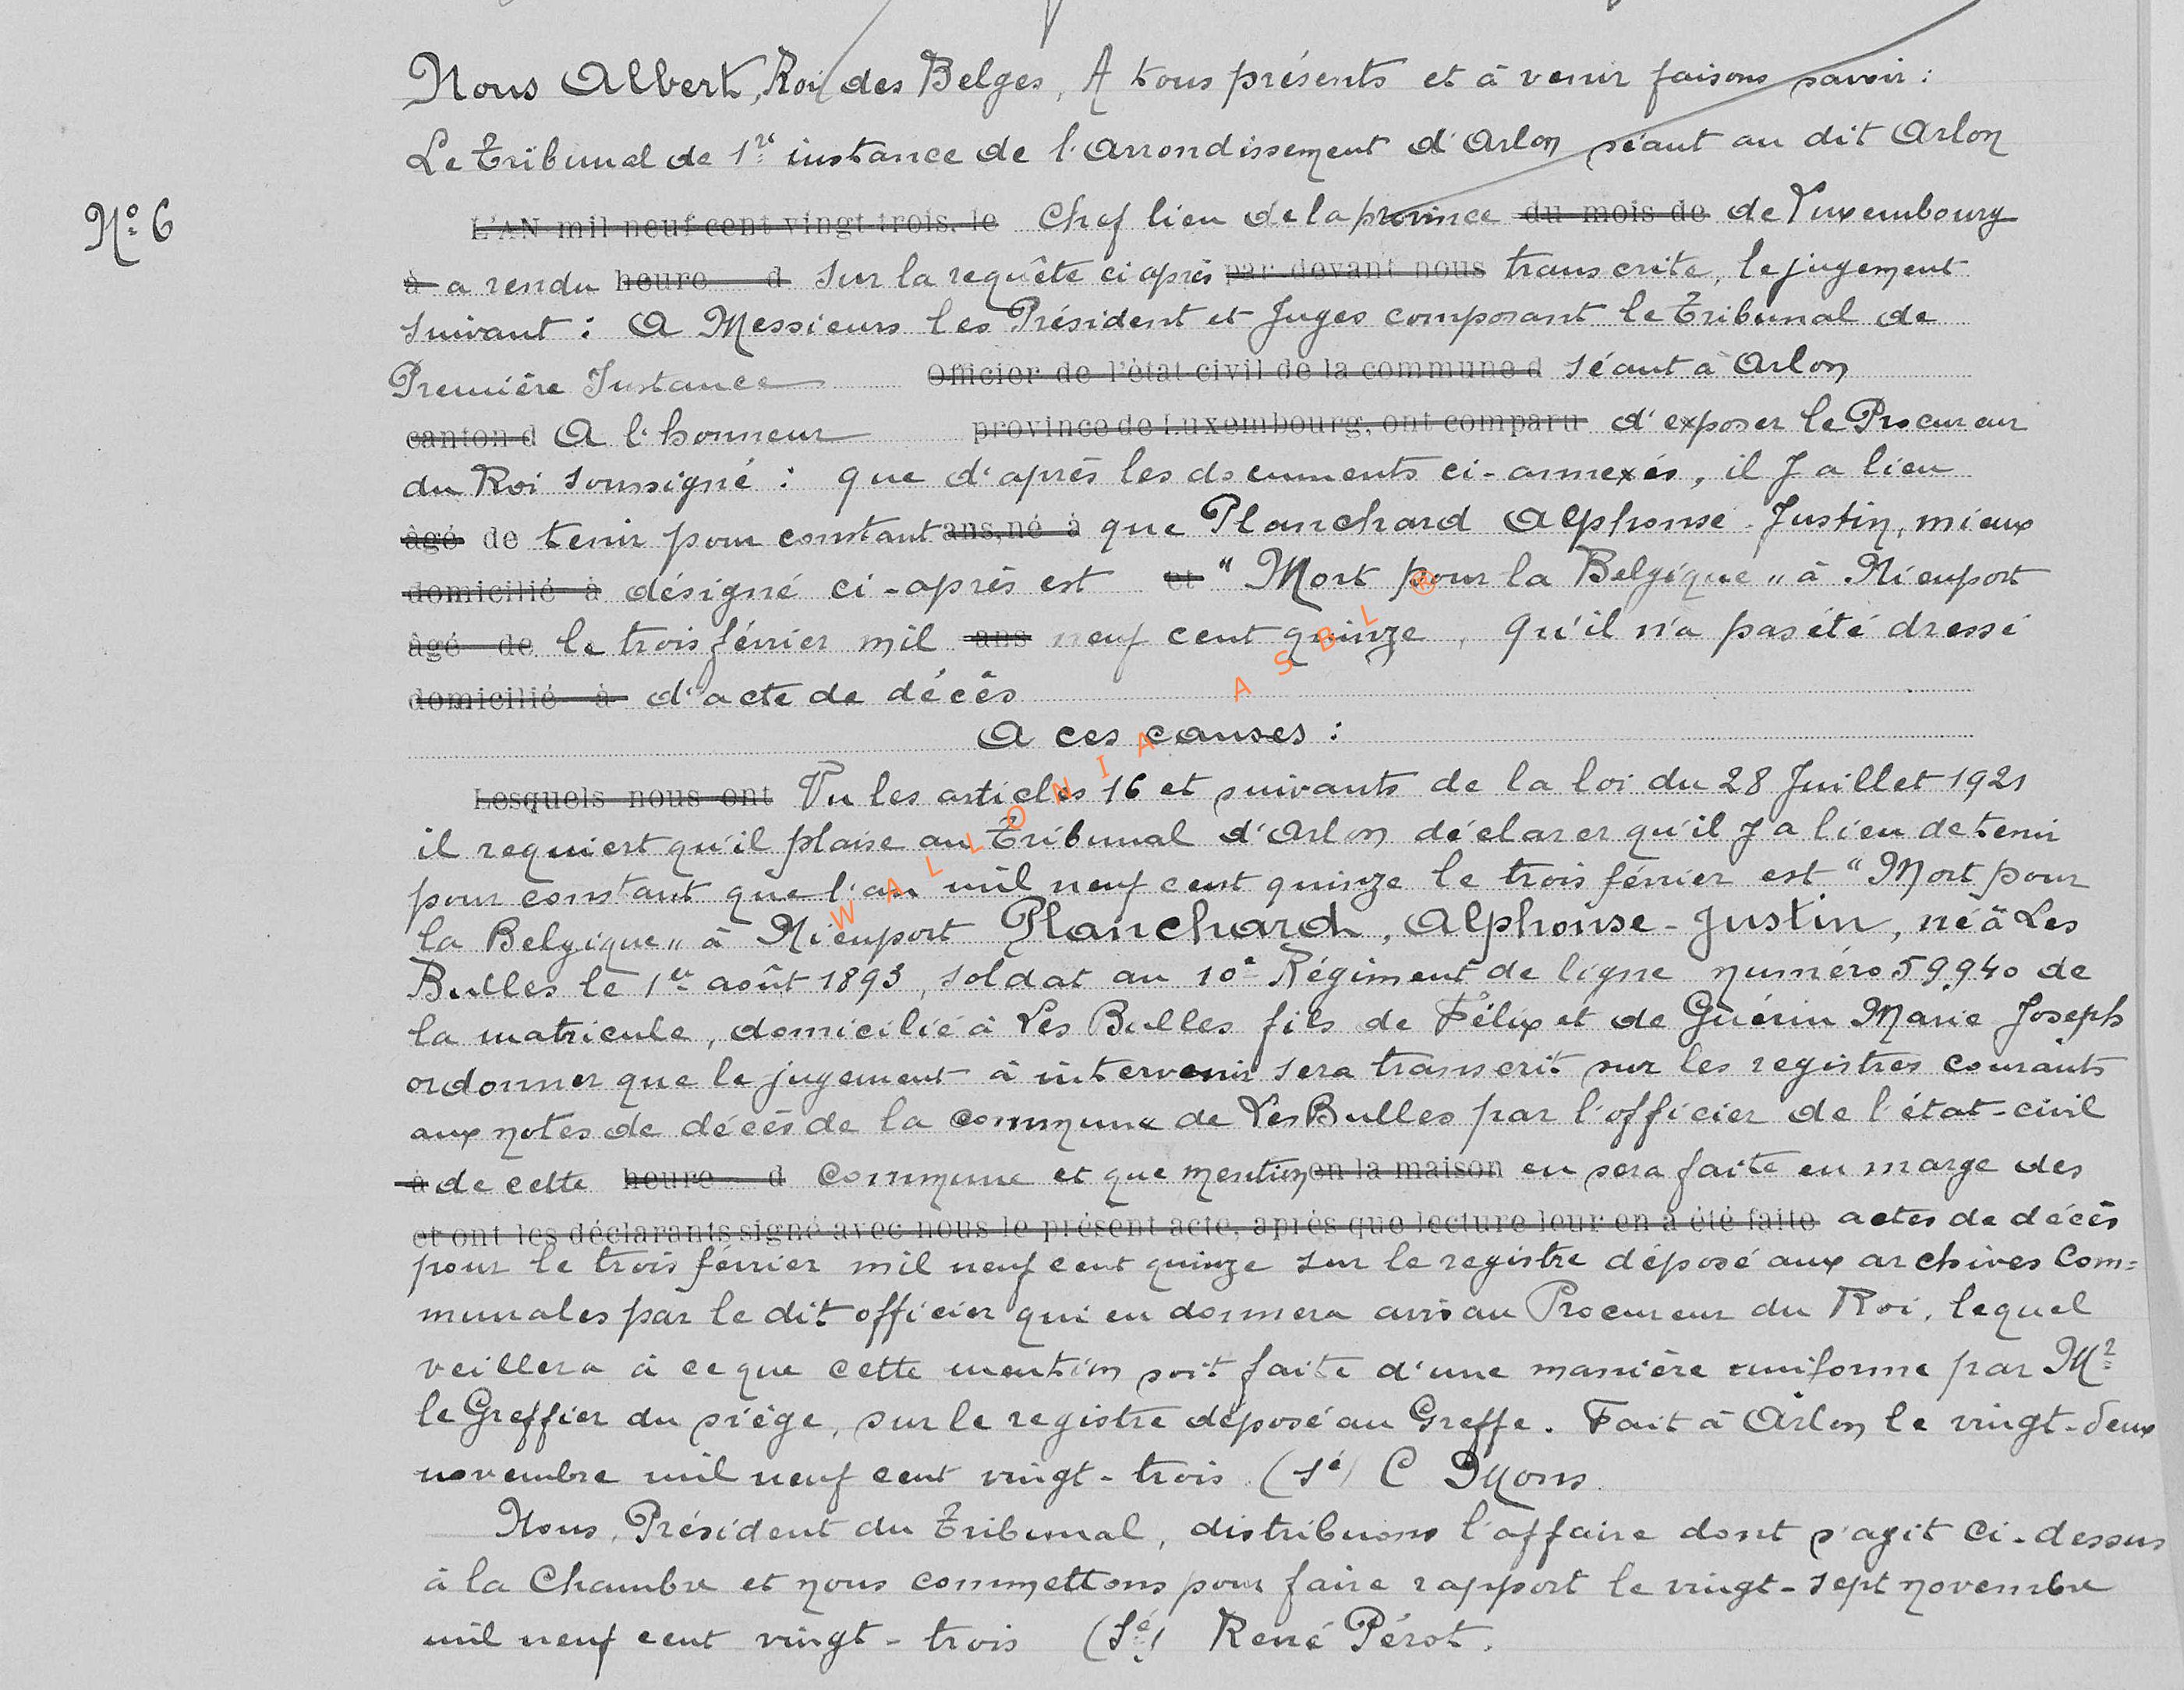 Nous Albert, Roi des Belges, A tous présents et à venir faisons savoir :
Le Tribunal de 1re instance de l'arrondissement d'Arlon séant au dit Arlon
N° 6
L'AN mil neuf cent vingt-trois, le Chef lieu de la province du mois de de Luxembourg
à a rendu heure d sur la requête ci après par devant nous transcrite, le jugement
suivant : A Messieurs les Président et Juges composant le Tribunal de
Première Instance Officier de l'état civil de la commune d séant à Arlon
canton d A l'honneur province de Luxembourg, ont comparu d'exposer le Procureur
du Roi soussigné : que d'après les documents ci-annexés, il y a lieu
âgé de tenir pour constant ans, né à que Planchard Alphonse-Justin, mieux
domicilié à désigné ci-après est et "Mort pour la Belgique" à Nieuport
âgé de le trois février mil ans neuf cent quinze, qu'il n'a pas été dressé
domicilié à d'acte de décès
A ces causes :
Lesquels nous ont Vu les articles 16 et suivants de la loi du 28 Juillet 1921
il requiert qu'il plaise au Tribunal d'Arlon déclarer qu'il y a lieu de tenir
pour constant que l'an mil neuf cent quinze le trois février est "Mort pour
la Belgique" à Nieuport Planchard, Alphonse-Justin, né à Les
Bulles le 1er août 1893, soldat au 10e Régiment de ligne numéro 59940 de
la matricule, domicilié à Les Bulles fils de Félix et de Guérin Marie Joseph
ordonner que le jugement à intervenir sera transcrit sur les registres courants
aux notes de décès de la commune de Les Bulles par l'officier de l'état-civil
à de cette heure d commune et que mention en la maison en sera faite en marge des
et ont les déclarants signé avec nous le présent acte, après que lecture leur en a été faite actes de décès
pour le trois février mil neuf cent quinze sur le registre déposé aux archives Com=
munales par le dit officier qui en donnera avis au Procureur du Roi, lequel
veillera à ce que cette mention soit faite d'une manière uniforme par Mr
le Greffier du siège, sur le registre déposé au Greffe. Fait à Arlon le vingt-deux
novembre mil neuf cent vingt-trois (sé) C Mons
Nous, Président du Tribunal, distribuons l'affaire dont s'agit ci-dessus
à la Chambre et nous commettons pour faire rapport le vingt-sept novembre
mil neuf cent vingt-trois (Sé) René Pérot.
WALLONIA ASBL ®